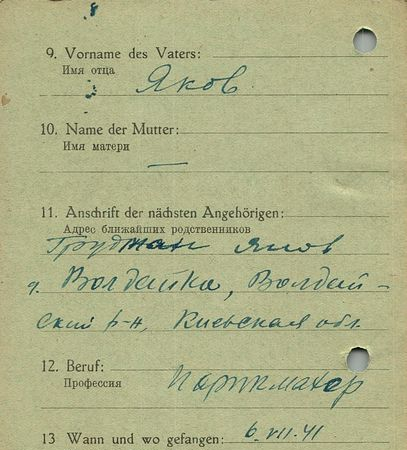 9. Vorname des Vaters:
Имя отца
Яков
10. Name der Mutter:
Имя матери
—
11. Anschrift der nächsten Angehörigen:
Адрес ближайших родственников
Грудман Яков
д. Волдайка, Волдай-
ский р-н, Киевская обл.
12. Beruf:
Профессия
Парикмахер
13 Wann und wo gefangen: 6. VII. 41